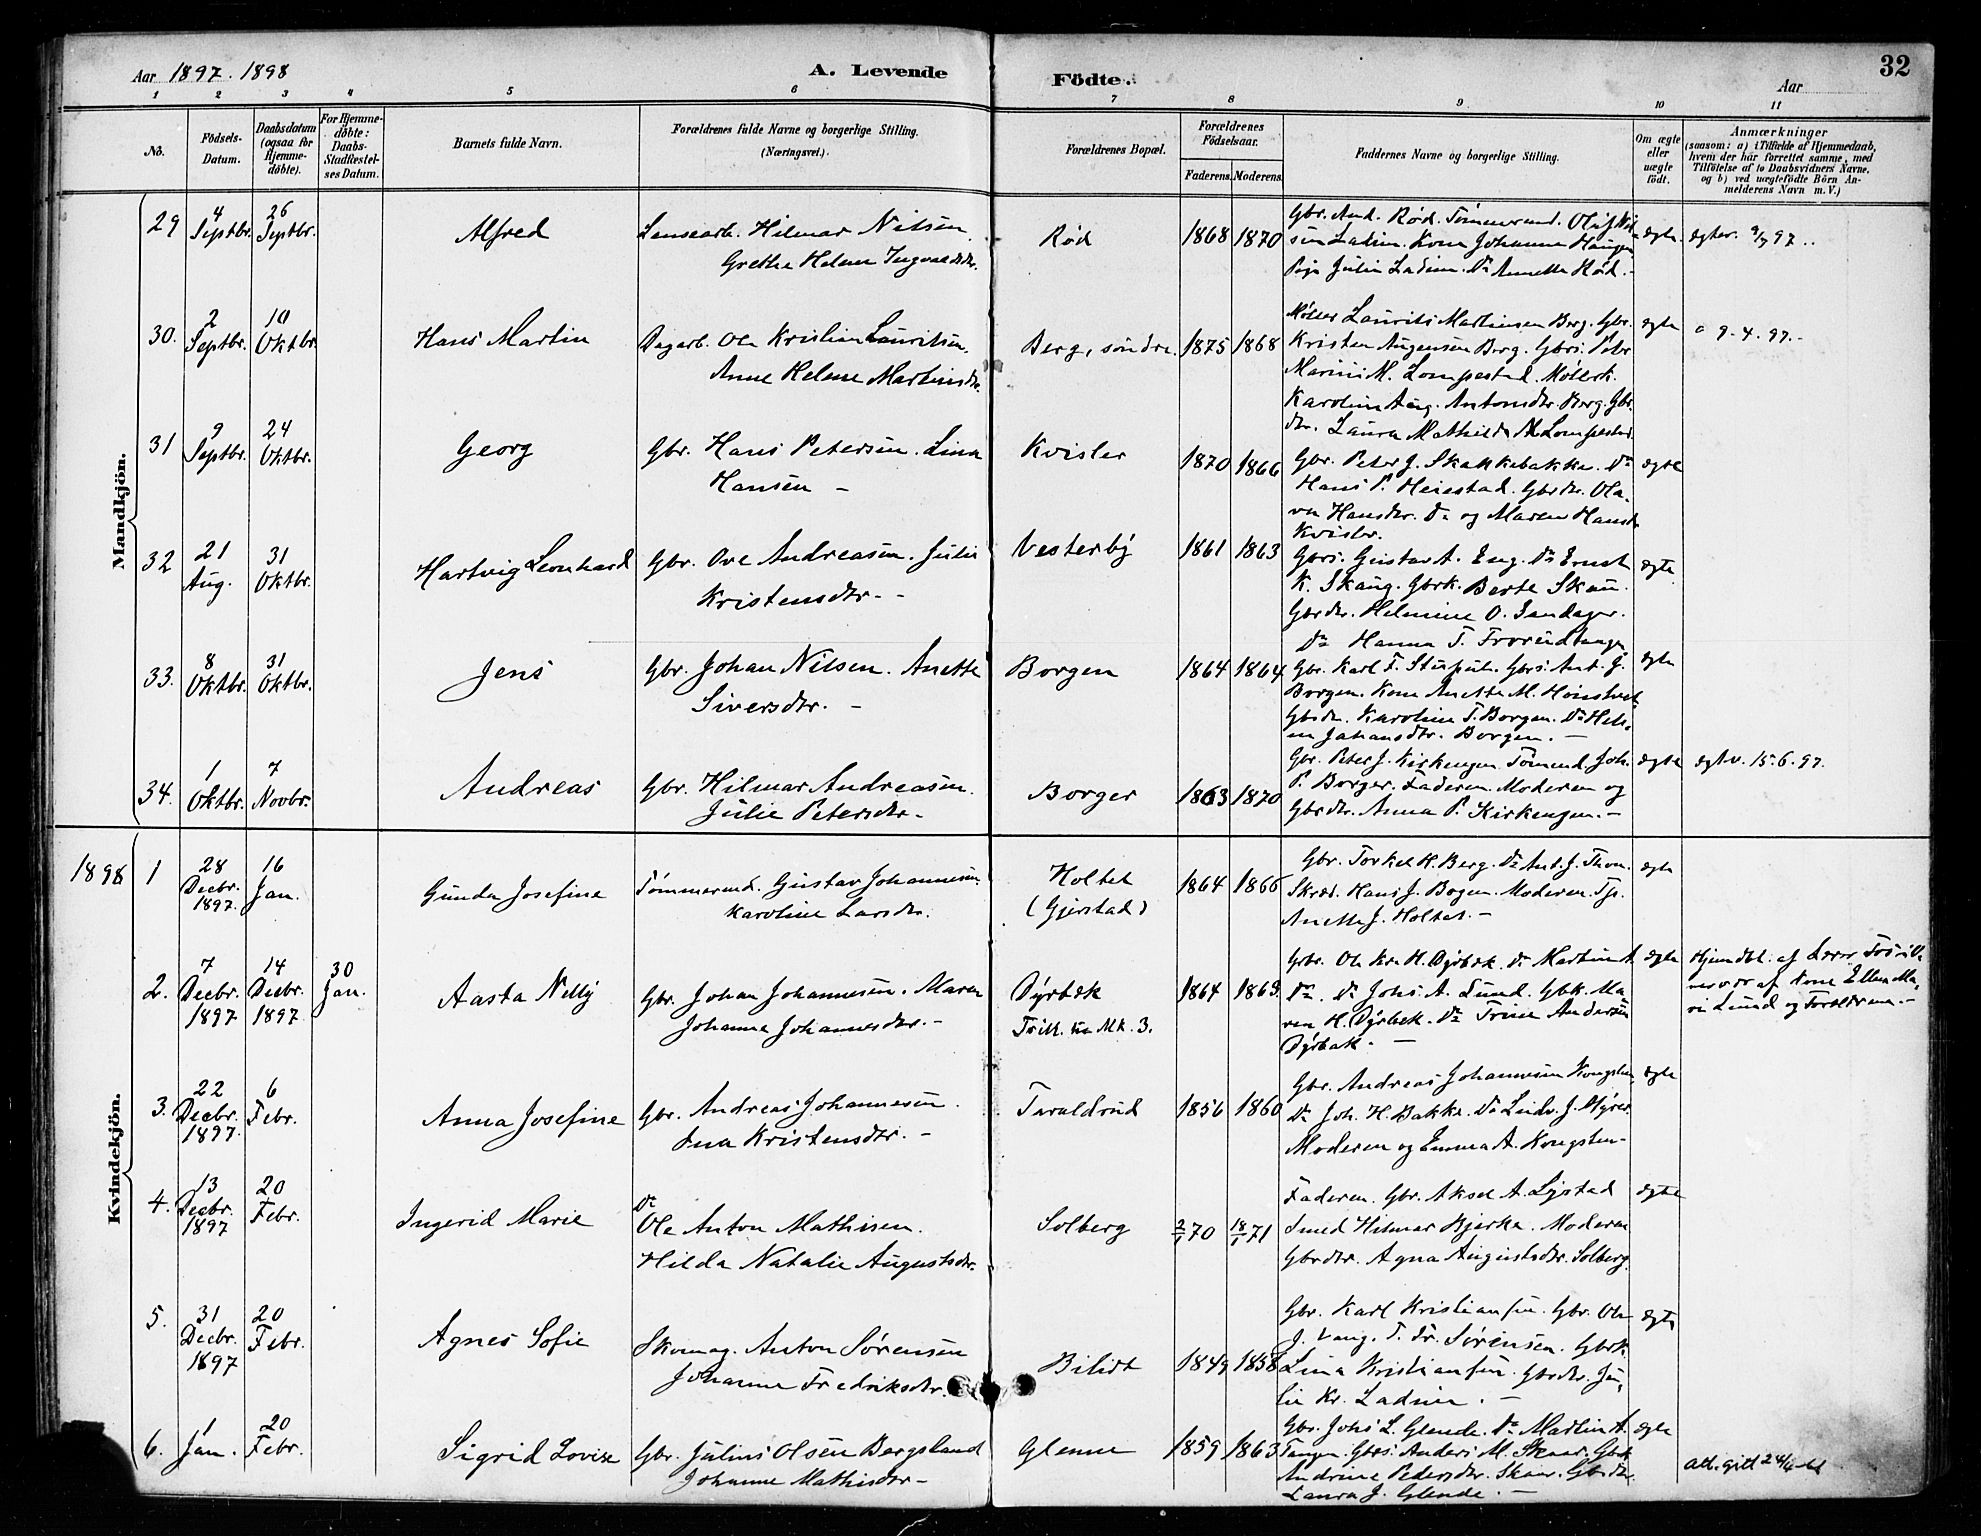 Aar 1897. 1898
A. Levende
Födte.
Aar
32
1 2 3 4 5 6 7 8 9 10 11
No.
Födsels-
Datum.
Daabsdatum
(ogsaa for
Hjemme-
döbte).
For Hjemme-
døbte:
Daabs-
Stadfæstel-
ses Datum.
Barnets fulde Navn.
Forældrenes fulde Navne og borgerlige Stilling.
(Næringsvei.)
Forældrenes Bopæl.
Forældrenes
Födselsaar.
Faderens. Moderens.
Faddernes Navne og borgerlige Stilling.
Om ægte
eller
uægte
født.
Anmærkninger
(saasom: a) i Tilfælde af Hjemmedaab,
hvem der har forrettet samme, med
Tilföielse af to Daabsvidners Navne,
og b) ved uægtefödte Börn An-
melderens Navn m. V.)
Mandkjön.
29
4
Septbr.
26
Septbr.
Alfred
Hilmar Nilsen
Grethe Helene Ingvaldsdr.
Rød
1868 1870
Gbr. And. Rød. Tømmermd.
Kone Johanne Haugen
Pige Julie Ladim. Do Annette Rød.
ægte
30.
2
Septbr.
10
Oktbr.
Hans Martin
Dagarb. Ole Kristian Lauritsen.
Anne Helene Martinsdr.
Berg, søndre.
1875 1868
Møller Laurits Martinsen Berg. Gbr.
Kristen Augensen Berg. Gbrs. Petr
Marini M. Lompestad. Møllerk.
Karoline Aug. Antonsdr. Berg. Gbr.
dr. Laura Mathilde M. Lompestad.
ægte
9-4-97.
31
9
Septbr.
24
Oktbr.
Georg
Gbr. Hans Petersen. Lina
Hansen
Kvisler
1870 1866
Gbr. Peter J. Skakkebakke. Do
Hans P. Heiestad. Gbrdr. Ola-
va Hansdr. Do og Maren Hansdr
Kvisler.
ægte
32
21
Aug.
31
Oktbr.
Hartvig Leonhard
Gbr. Ove Andreasen. Julie
Kristensdtr.
Vesterby
1861 1863
Gbrs. Gustav A. Eng. Do Ernst
K. Skaug. Gbrk. Berte Skau.
Gbrdr. Helmine O. Sandager.
Do Hanna T.
ægte
33.
8
Oktbr.
31
Oktbr.
Jens
Gbr. Johan Nilsen. Anette
Siversdtr.
Borgen
1864 1864
Gbr. Karl F. Gbrs. Ant. J.
Borgen. Kone Anette M.
Gbrdr. Karoline T. Borgen. Do Hele-
ne Johansdtr. Borgen.
ægte
34.
1
Oktbr.
7
Novbr.
Andreas
Gbr. Hilmar Andreasen.
Julie Petersdtr.
Borger
1863 1870
Gbr. Peter J. Kirkengen. Tømmermd. Joh.
P. Borger. Faderen. Moderen og
Gbrdtr. Anna P. Kirkengen.
ægte
ægtv. 15-6-97.
Kvindekjön.
1898
1
28
Decbr.
1897.
16
Jan.
Gunda Josefine
Tømmermd. Gustav Johannesen.
Karoline Larsdtr.
Holtet
(Gjerstad)
1864 1866
Gbr. Torkel H. Berg. Do Ant. J. Thon.
Skræd. Hans J. Bogen. Moderen. Tjp.
Anette J. Holtet.
ægte
2.
7
Decbr.
1897
14
Decbr.
1897
30
Jan.
Aasta Nelly
Gbr. Johan Johannesen. Maren
Johanne Johannesdtr.
Dyrbæk
1864 1869.
Gbr. Ole Kr. H. Dyrbæk. Do Martin A.
Do. Do Johs A. Lund. Gbk. Ma-
ren H. Dyrbæk. Do Trine Andersen
Dyrbæk.
ægte
Kone Ellen Ma-
rie Lund og Forældrene.
3.
22
Decbr.
1897.
6
Febr.
Anna Josefine
Gbr. Andreas Johannesen.
Ina Kristensdtr.
Taraldrud
1856 1860
Gbr. Andreas Johannesen Kongsten,
Do Joh. H. Bakke. Do Ludv. J. Myrer.
Moderen og Emma A. Kongsten
ægte
4.
13
Decbr.
1897
20
Febr.
Ingerid Marie
Do
Ole Anton Mathisen.
Hilda Natalie Augustsdtr.
Solberg
2/1 70 18/1 71
Faderen. Gbr. Aksel A. Lystad
Smed Hilmar Bjerke. Moderen
Gbrdtr. Agna Augustsdtr. Solberg.
ægte
5.
31
Decbr.
1897
20
Febr.
Agnes Sofie
Skomag. Anton Sørensen
Johanne Fredriksdtr.
Bilidt
1849 1858
Gbr. Karl Kristiansen. Gbr. Ole
J. Vang. T. Fr. Sørensen. Gbrk.
Lina Kristiansen. Gbrdtr. Ju-
lie Kr. Ladim.
ægte
6.
1
Jan.
20
Febr.
Sigrid Lovise
Gbr. Julius Olsen Bergsland
Johanne Mathisdtr.
Glenne
1859 1863
Gbr. Johs L. Glende. Do Martin A.
Tangen. Gbrs. Anders M. Skaar. Gbrk.
Andrine Pedersdtr. Skaar. Gbrdtr.
Laura J. Glende.
ægte